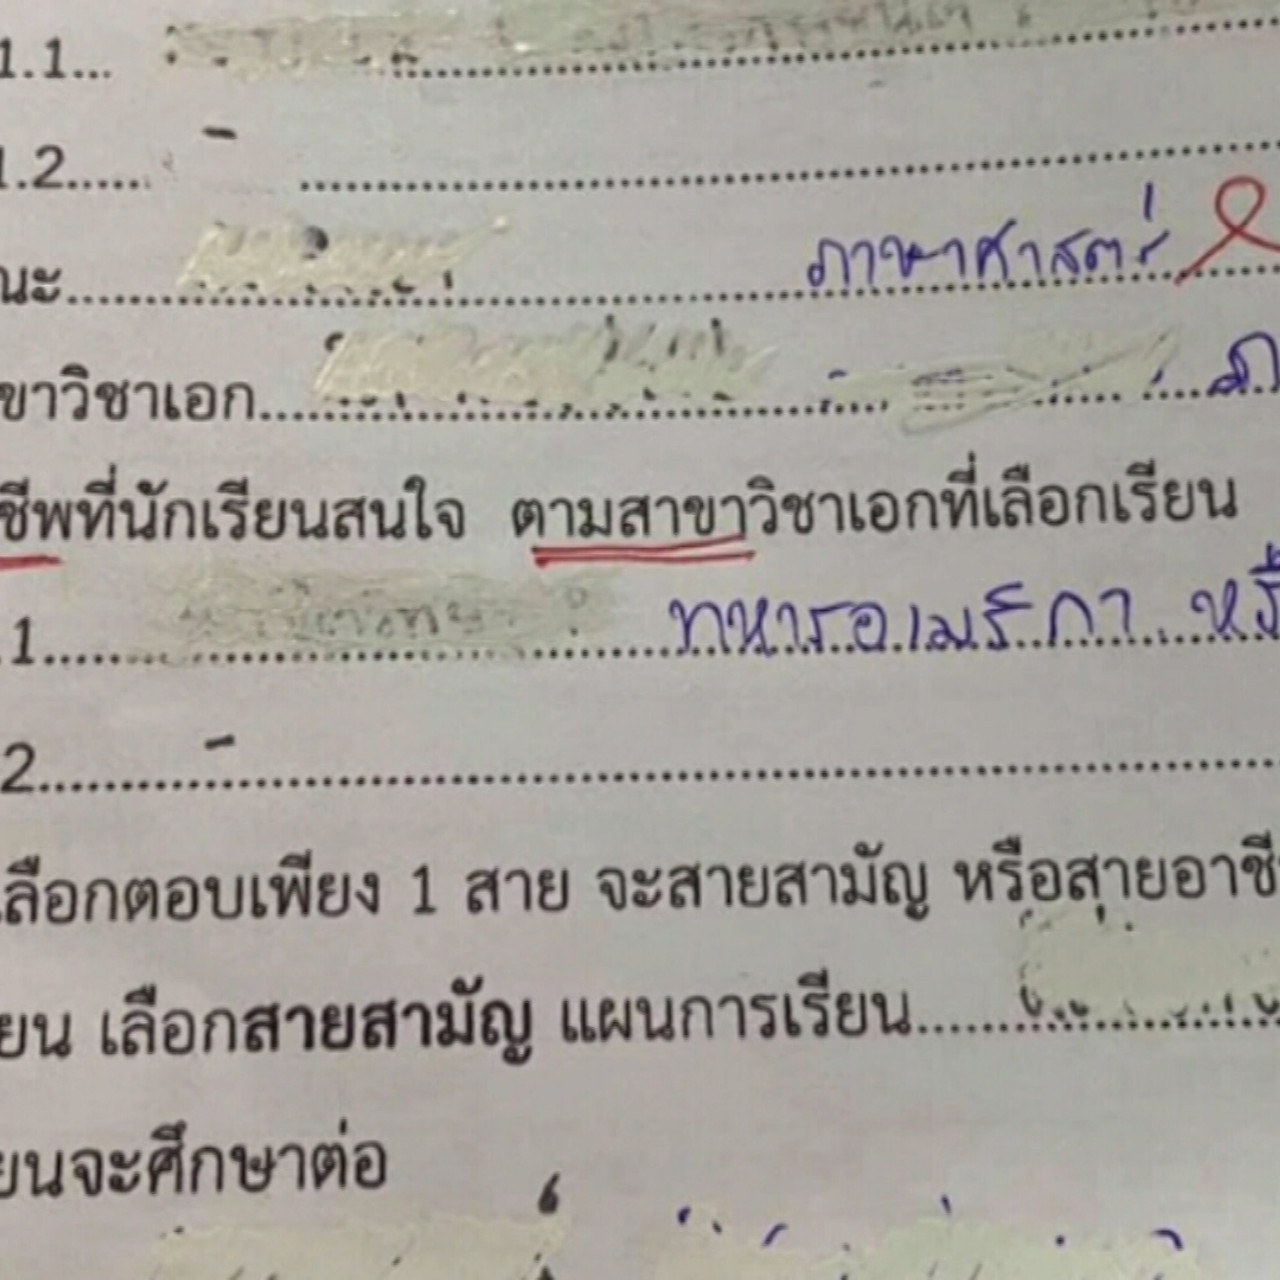 1.1...
1.2.....-
นะ..... ภาษาศาสตร์
ขาวิชาเอก.....
ชีพที่นักเรียนสนใจ ตามสาขาวิชาเอกที่เลือกเรียน
.1..... ทหารอเมริกา หรื
2.....-
เลือกตอบเพียง 1 สาย จะสายสามัญ หรือสายอาชี
ยน เลือกสายสามัญ แผนการเรียน.....
ยนจะศึกษาต่อ